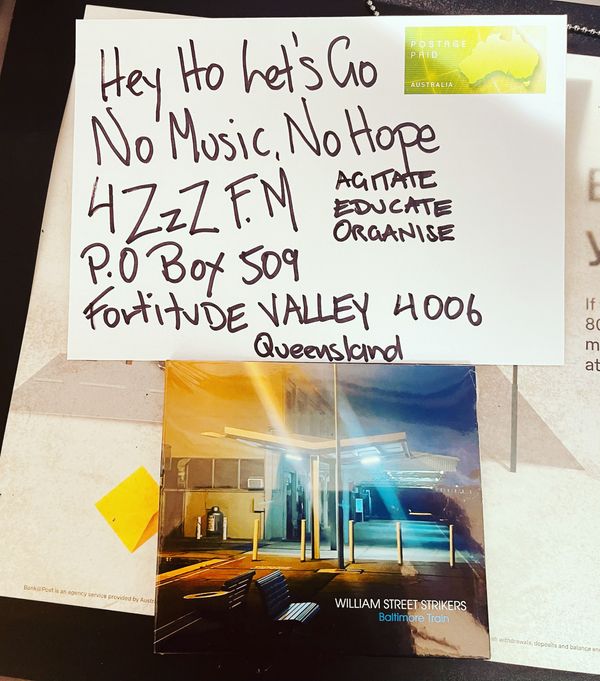 Hey Ho Let's Go
POSTAGE
PAID
AUSTRALIA
No Music, No Hope
4ZzZ F.M
AGITATE
EDUCATE
ORGANISE
P.O Box 509
FortituDE VALLEY 4006
Queensland
If
80
m
at
WILLIAM STREET STRIKERS
Baltimore Train
Bank@Post is an agency service provided by Austr
withdrawals, deposits and balance en